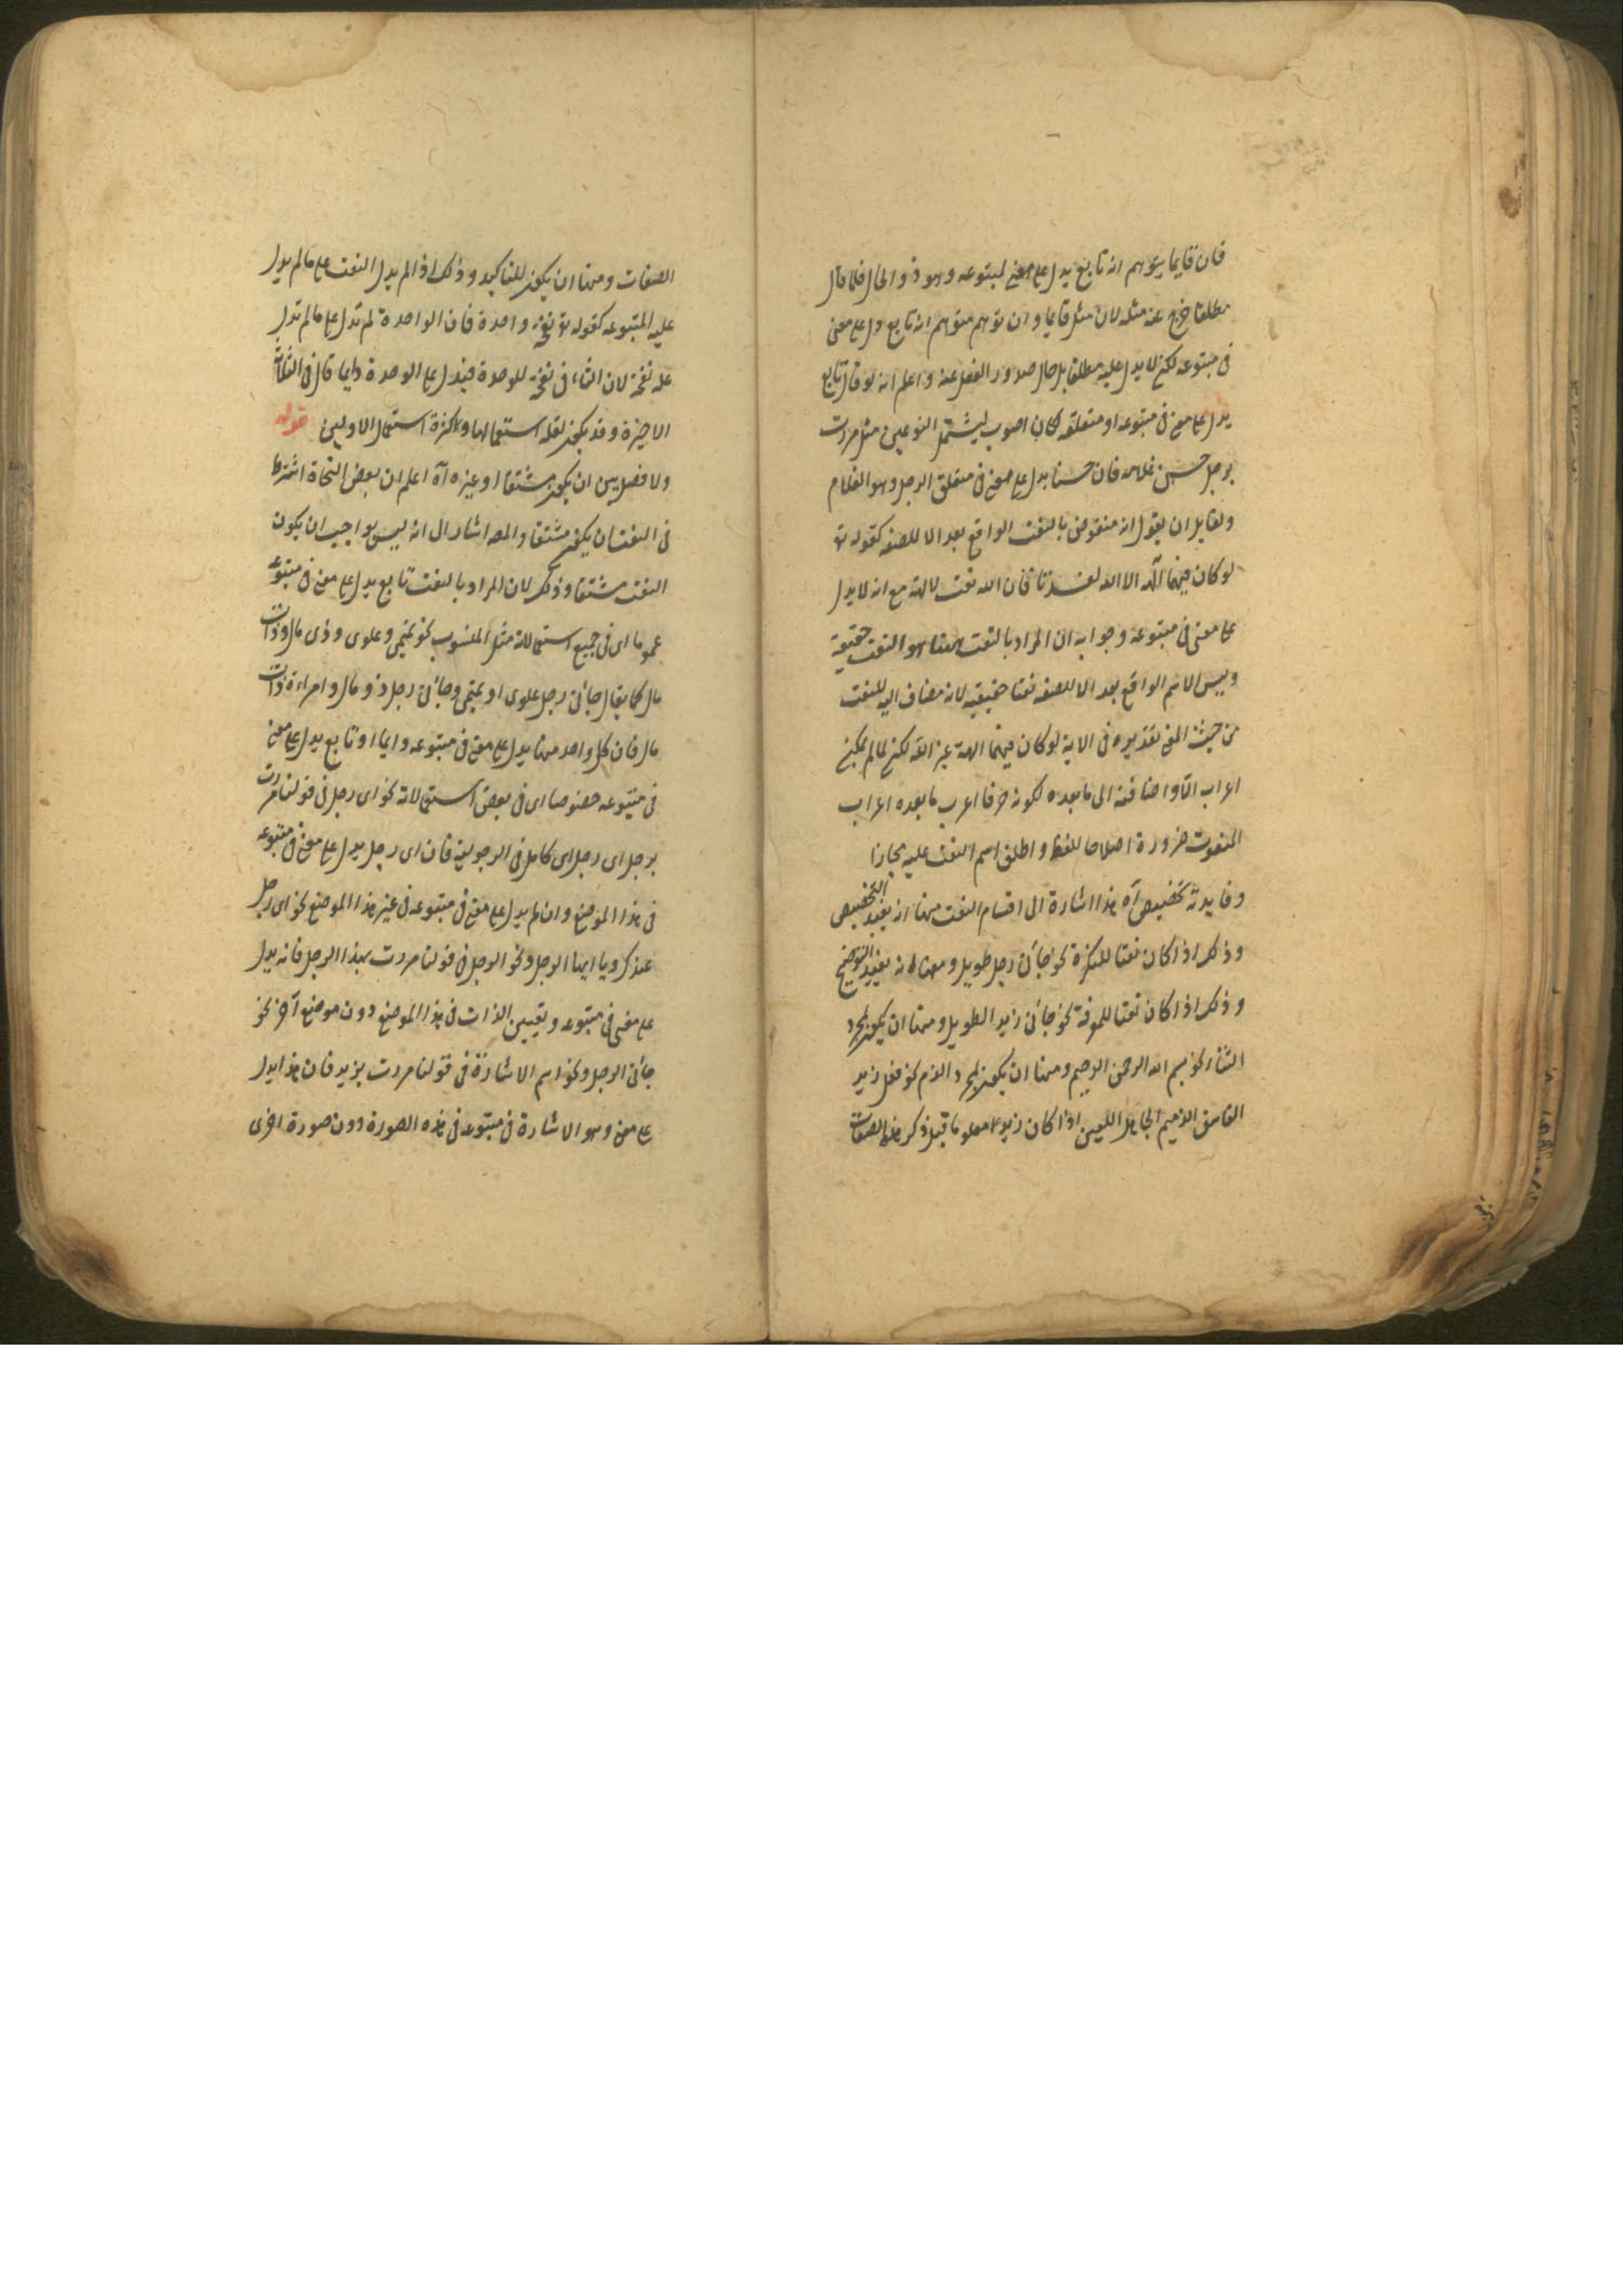 فان قايما يتوهم انه تابع يدل على معنى لمتبوعه وهو ذو الحال فلما قال
مطلقا خرج عنه مثله لان مثل قايما وان توهم متوهم انه تابع دل على معنى
فى متبوعه لكن لا يدل عليه مطلقا بل حال صدور الفعل عنه واعلم انه لو قال تابع
يدل على معنى فى متبوعه او متعلقه لكان اصوب ليشتمل النوعين مثل مررت
برجل حسن غلامه فان حسنا يدل على معنى فى متعلق الرجل وهو الغلام
ولقايل ان يقول انه منقوض بالنعت الواقع بعد الا للصفه كقوله تع
لو كان فيهما آلهه الا الله لفسدتا فان الله نعت لالهة مع انه لا يدل
على معنى فى متبوعه وجوابه ان المراد بالنعت ههنا هو النعت حقيقة
وليس الاسم الواقع بعد الا للصفه نعتا حقيقيه لانه مضاف اليه للنعت
من حيث المعنى تقديره فى الاية لو كان فيهما الهة غير الله لكن لما لم يمكن
اعراب الا واضافته الى ما بعده لكونه حرفا اعرب ما بعده اعراب
المنعوت ضرورة اصلاحا للفظ واطلق اسم النعت عليه مجازا
وفايدته تخصيص آه هذا اشارة الى اقسام النعت منها انه يفيد التخصيص
وذلك اذا كان نعتا للنكرة نحو جائنى رجل طويل ومنها انه يفيد التوضيح
وذلك اذا كان نعتا للمعرفة نحو جائنى زيد الطويل ومنها ان يكون لمجرد
الثناء نحو بسم الله الرحمن الرحيم ومنها ان يكون لمجرد الذم نحو فعل زيد
الفاسق الذميم الجاهل اللعين اذا كان زيد معلوما قبل ذكر هذه الصفات
الصفات ومنها ان يكون للتاكيد وذلك اذا لم يدل النعت على ما لم يدل
عليه المتبوعه كقوله تع نفخة واحدة فان الواحدة لم تدل على ما لم تدل
عليه نفخة لان التاء فى نفخة للوحدة فيدل على الوحدة وايما قال فى الثلثة
الاخيرة وقد يكون لقلة استعمالها ولكثرة استعمال الاولين قوله
ولا فصل بين ان يكون مشتقا او غيره آه اعلم ان بعض النحاة اشترط
فى النعت ان يكون مشتقا والمصه اشار الى انه ليس بواجب ان يكون
النعت مشتقا وذلك لان المراد بالنعت تابع يدل على معنى فى متبوعه
عموما اى فى جميع استعمالاته مثل المنسوب نحو تميمى وعلوى وذى مال وذات
مال كما يقال جائنى رجل علوى او تميمى وجائنى رجل ذو مال وامراءة ذات
مال فان كل واحد منها يدل على معنى فى متبوعه دايما او تابع يدل على معنى
فى متبوعه خصوصا اى فى بعض استعمالاته نحو اى رجل فى قولنا مررت
برجل اى رجل اى كامل فى الرجولية فان اى رجل يدل على معنى فى متبوعه
فى هذا الموضع وان لم يدل على معنى فى متبوعه فى غير هذا الموضع نحو اى رجل
عندك ويا ايها الرجل ونحو الرجل فى قولنا مررت بهذا الرجل فانه يدل
على معنى فى متبوعه وتعيين الذات فى هذا الموضع دون موضع آخر نحو
جائنى الرجل ونحو اسم الاشارة فى قولنا مررت بزيد فان هذا يدل
على معنى وهو الاشارة فى متبوعه فى هذه الصورة دون صورة اخرى